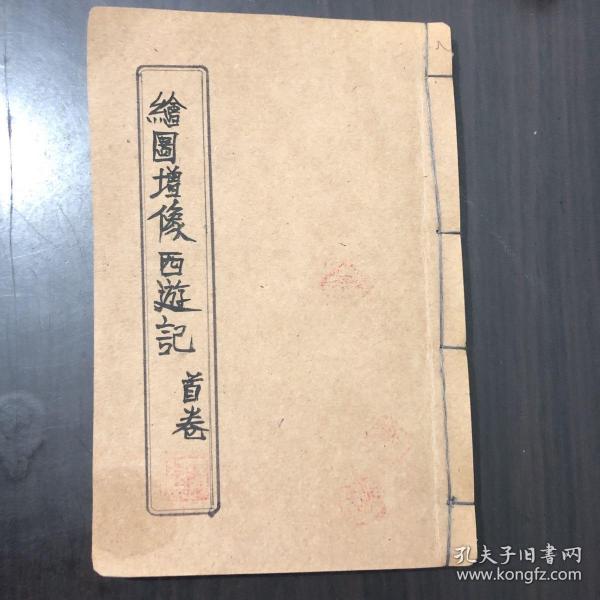 繪圖增像西遊記
首卷
孔夫子旧书网
www.kongfz.com